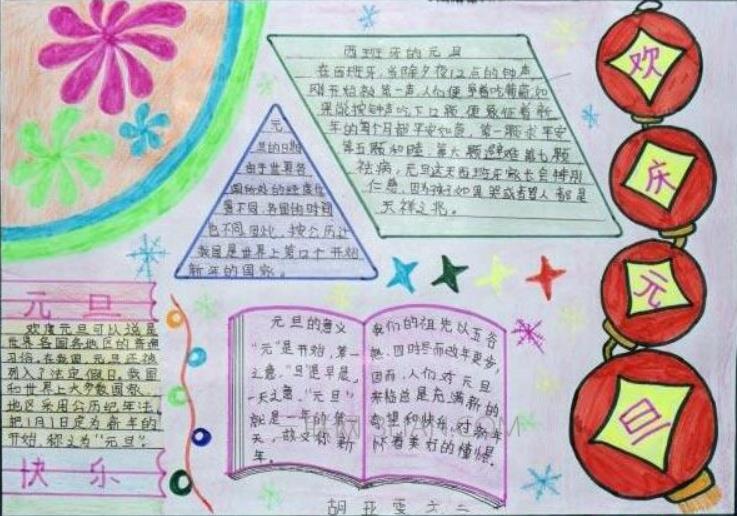 西班牙的元旦
在西班牙,当除夕夜12点的钟声
刚开始敲第一声,人们便争着吃葡萄,如
果能按钟声吃下12颗,便象征着新
年的每个月都平安如意,第一颗求平安
第五颗和睦,第六颗避难,第七颗
祛病,元旦这天西班牙家长会特别
仁慈,因为孩子如果哭或者骂人都是
不祥之兆。
元
旦的日期
由于世界各
国所处的经度位
置不同,各国的时间
也不同,因此,按公历计
我国是世界上第12个开始
新年的国家。
欢
庆
元
旦
元旦
欢度元旦可以说是
世界各国各地区的普遍
习俗,在我国,元旦还被
列入了法定假日。我国
和世界上大多数国家、
地区采用公历纪年法,
把1月1日定为新年的
开始,称之为“元旦”。
快乐
元旦的意义
“元”是开始,第一
之意,“旦”是早晨,
一天之意,“元旦”
就是一年的第一
天,故又称“新
年。
我们的祖先以五谷
熟,四时尽而改年更岁,
因而,人们对元旦
来临总是充满新的
希望和快乐,对新年
怀着美好的憧憬。
胡亚雯 六二